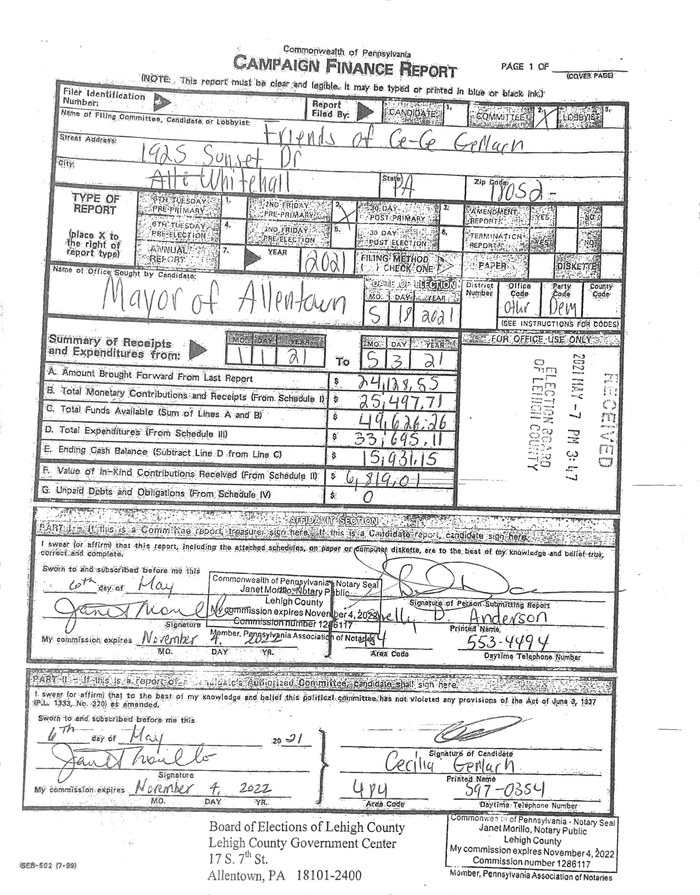 Commonwealth of Pennsylvania
CAMPAIGN FINANCE REPORT
PAGE 1 OF
(COVER PAGE)
(NOTE: This report must be clear and legible. It may be typed or printed in blue or black ink.)
Filer Identification Number:
Report Filed By:
CANDIDATE 1.
COMMITTEE 2. X
LOBBYIST 3.
Name of Filing Committee, Candidate or Lobbyist:
Friends of Ce-Ce Gerlach
Street Address:
1925 Sunset Dr
City:
Whitehall
State:
PA
Zip Code:
18052 -
TYPE OF REPORT
(place X to the right of report type)
6TH TUESDAY PRE-PRIMARY 1.
2ND FRIDAY PRE-PRIMARY 2. X
30 DAY POST-PRIMARY 3.
AMENDMENT REPORT YES NO
6TH TUESDAY PRE-ELECTION 4.
2ND FRIDAY PRE-ELECTION 5.
30 DAY POST ELECTION 6.
TERMINATION REPORT YES NO
ANNUAL REPORT 7.
YEAR 2021
FILING METHOD ( ) CHECK ONE
PAPER
DISKETTE
Name of Office Sought by Candidate:
Mayor of Allentown
DATE OF ELECTION
MO. DAY YEAR
5 18 2021
District Number
Office Code
Othr
Party Code
Dem
County Code
(SEE INSTRUCTIONS FOR CODES)
Summary of Receipts and Expenditures from:
MO. DAY YEAR
1 1 21
To
MO. DAY YEAR
5 3 21
FOR OFFICE USE ONLY
A. Amount Brought Forward From Last Report $ 24,128.55
B. Total Monetary Contributions and Receipts (From Schedule I) $ 25,497.71
C. Total Funds Available (Sum of Lines A and B) $ 49,626.26
D. Total Expenditures (From Schedule III) $ 33,695.11
E. Ending Cash Balance (Subtract Line D from Line C) $ 15,931.15
F. Value of In-Kind Contributions Received (From Schedule II) $ 6,819.01
G. Unpaid Debts and Obligations (From Schedule IV) $ 0
RECEIVED
2021 MAY -7 PM 3:47
ELECTION BOARD
OF LEHIGH COUNTY
AFFIDAVIT SECTION
PART I - If this is a Committee report, treasurer sign here. If this is a Candidate report, candidate sign here.
I swear (or affirm) that this report, including the attached schedules, on paper or computer diskette, are to the best of my knowledge and belief true, correct and complete.
Sworn to and subscribed before me this
6th day of May
Commonwealth of Pennsylvania - Notary Seal
Janet Morillo, Notary Public
Lehigh County
My commission expires November 4, 2022
Commission number 1286117
Member, Pennsylvania Association of Notaries
Signature of Person Submitting Report
Shelly D. Anderson
Printed Name
My commission expires November 4, 2022
MO. DAY YR.
484
Area Code
553-4494
Daytime Telephone Number
PART II - If this is a report of a Candidate's Authorized Committee, candidate shall sign here.
I swear (or affirm) that to the best of my knowledge and belief this political committee has not violated any provisions of the Act of June 3, 1937
(P.L. 1333, No. 320) as amended.
Sworn to and subscribed before me this
6th day of May 2021
Janet Morillo
Signature
Signature of Candidate
Cecilia Gerlach
Printed Name
My commission expires November 4, 2022
MO. DAY YR.
484
Area Code
597-0354
Daytime Telephone Number
Commonwealth of Pennsylvania - Notary Seal
Janet Morillo, Notary Public
Lehigh County
My commission expires November 4, 2022
Commission number 1286117
Member, Pennsylvania Association of Notaries
Board of Elections of Lehigh County
Lehigh County Government Center
17 S. 7th St.
Allentown, PA 18101-2400
SEB-502 (7-99)